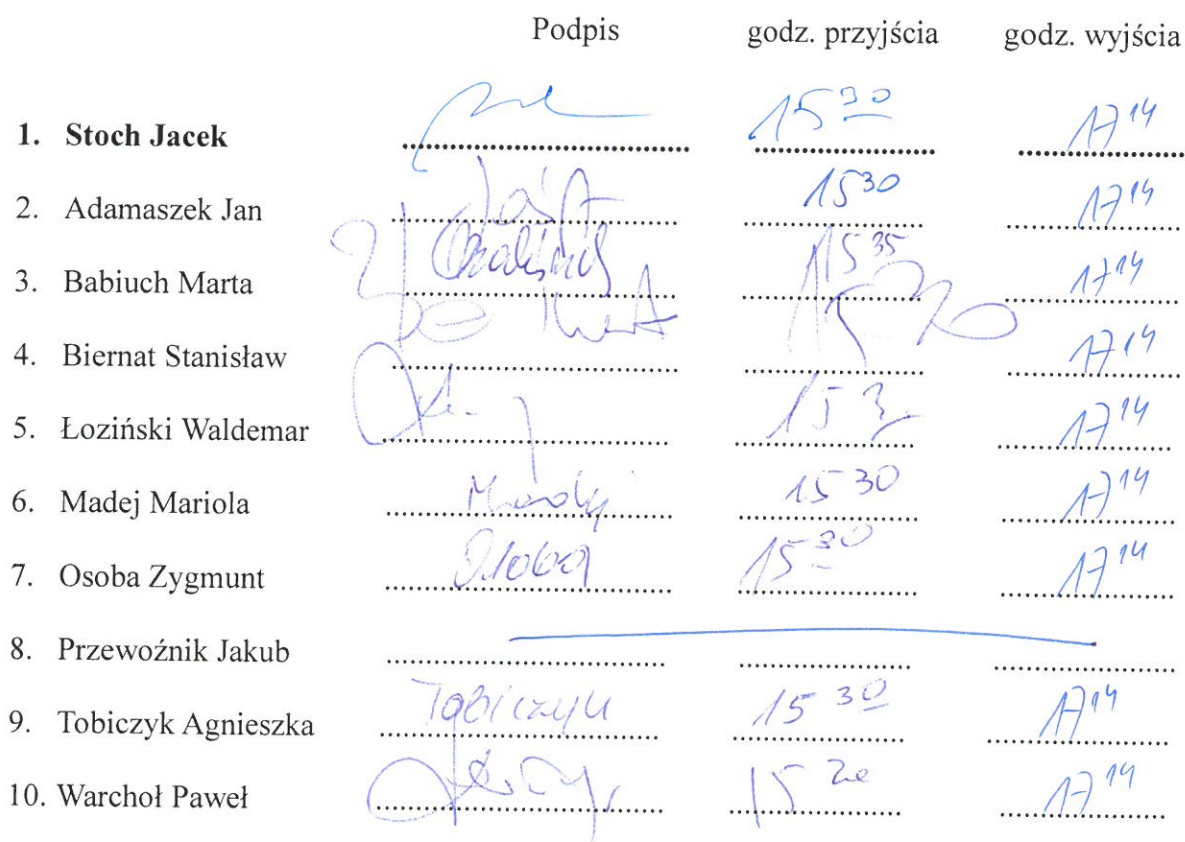 Podpis godz. przyjścia godz. wyjścia
1. Stoch Jacek 15 30 17 14
2. Adamaszek Jan 15 30 17 14
3. Babiuch Marta 15 35 17 14
4. Biernat Stanisław 17 14
5. Łoziński Waldemar 17 14
6. Madej Mariola Madej 15 30 17 14
7. Osoba Zygmunt Osoba 15 30 17 14
8. Przewoźnik Jakub
9. Tobiczyk Agnieszka Tobiczyk 15 30 17 14
10. Warchoł Paweł 17 14